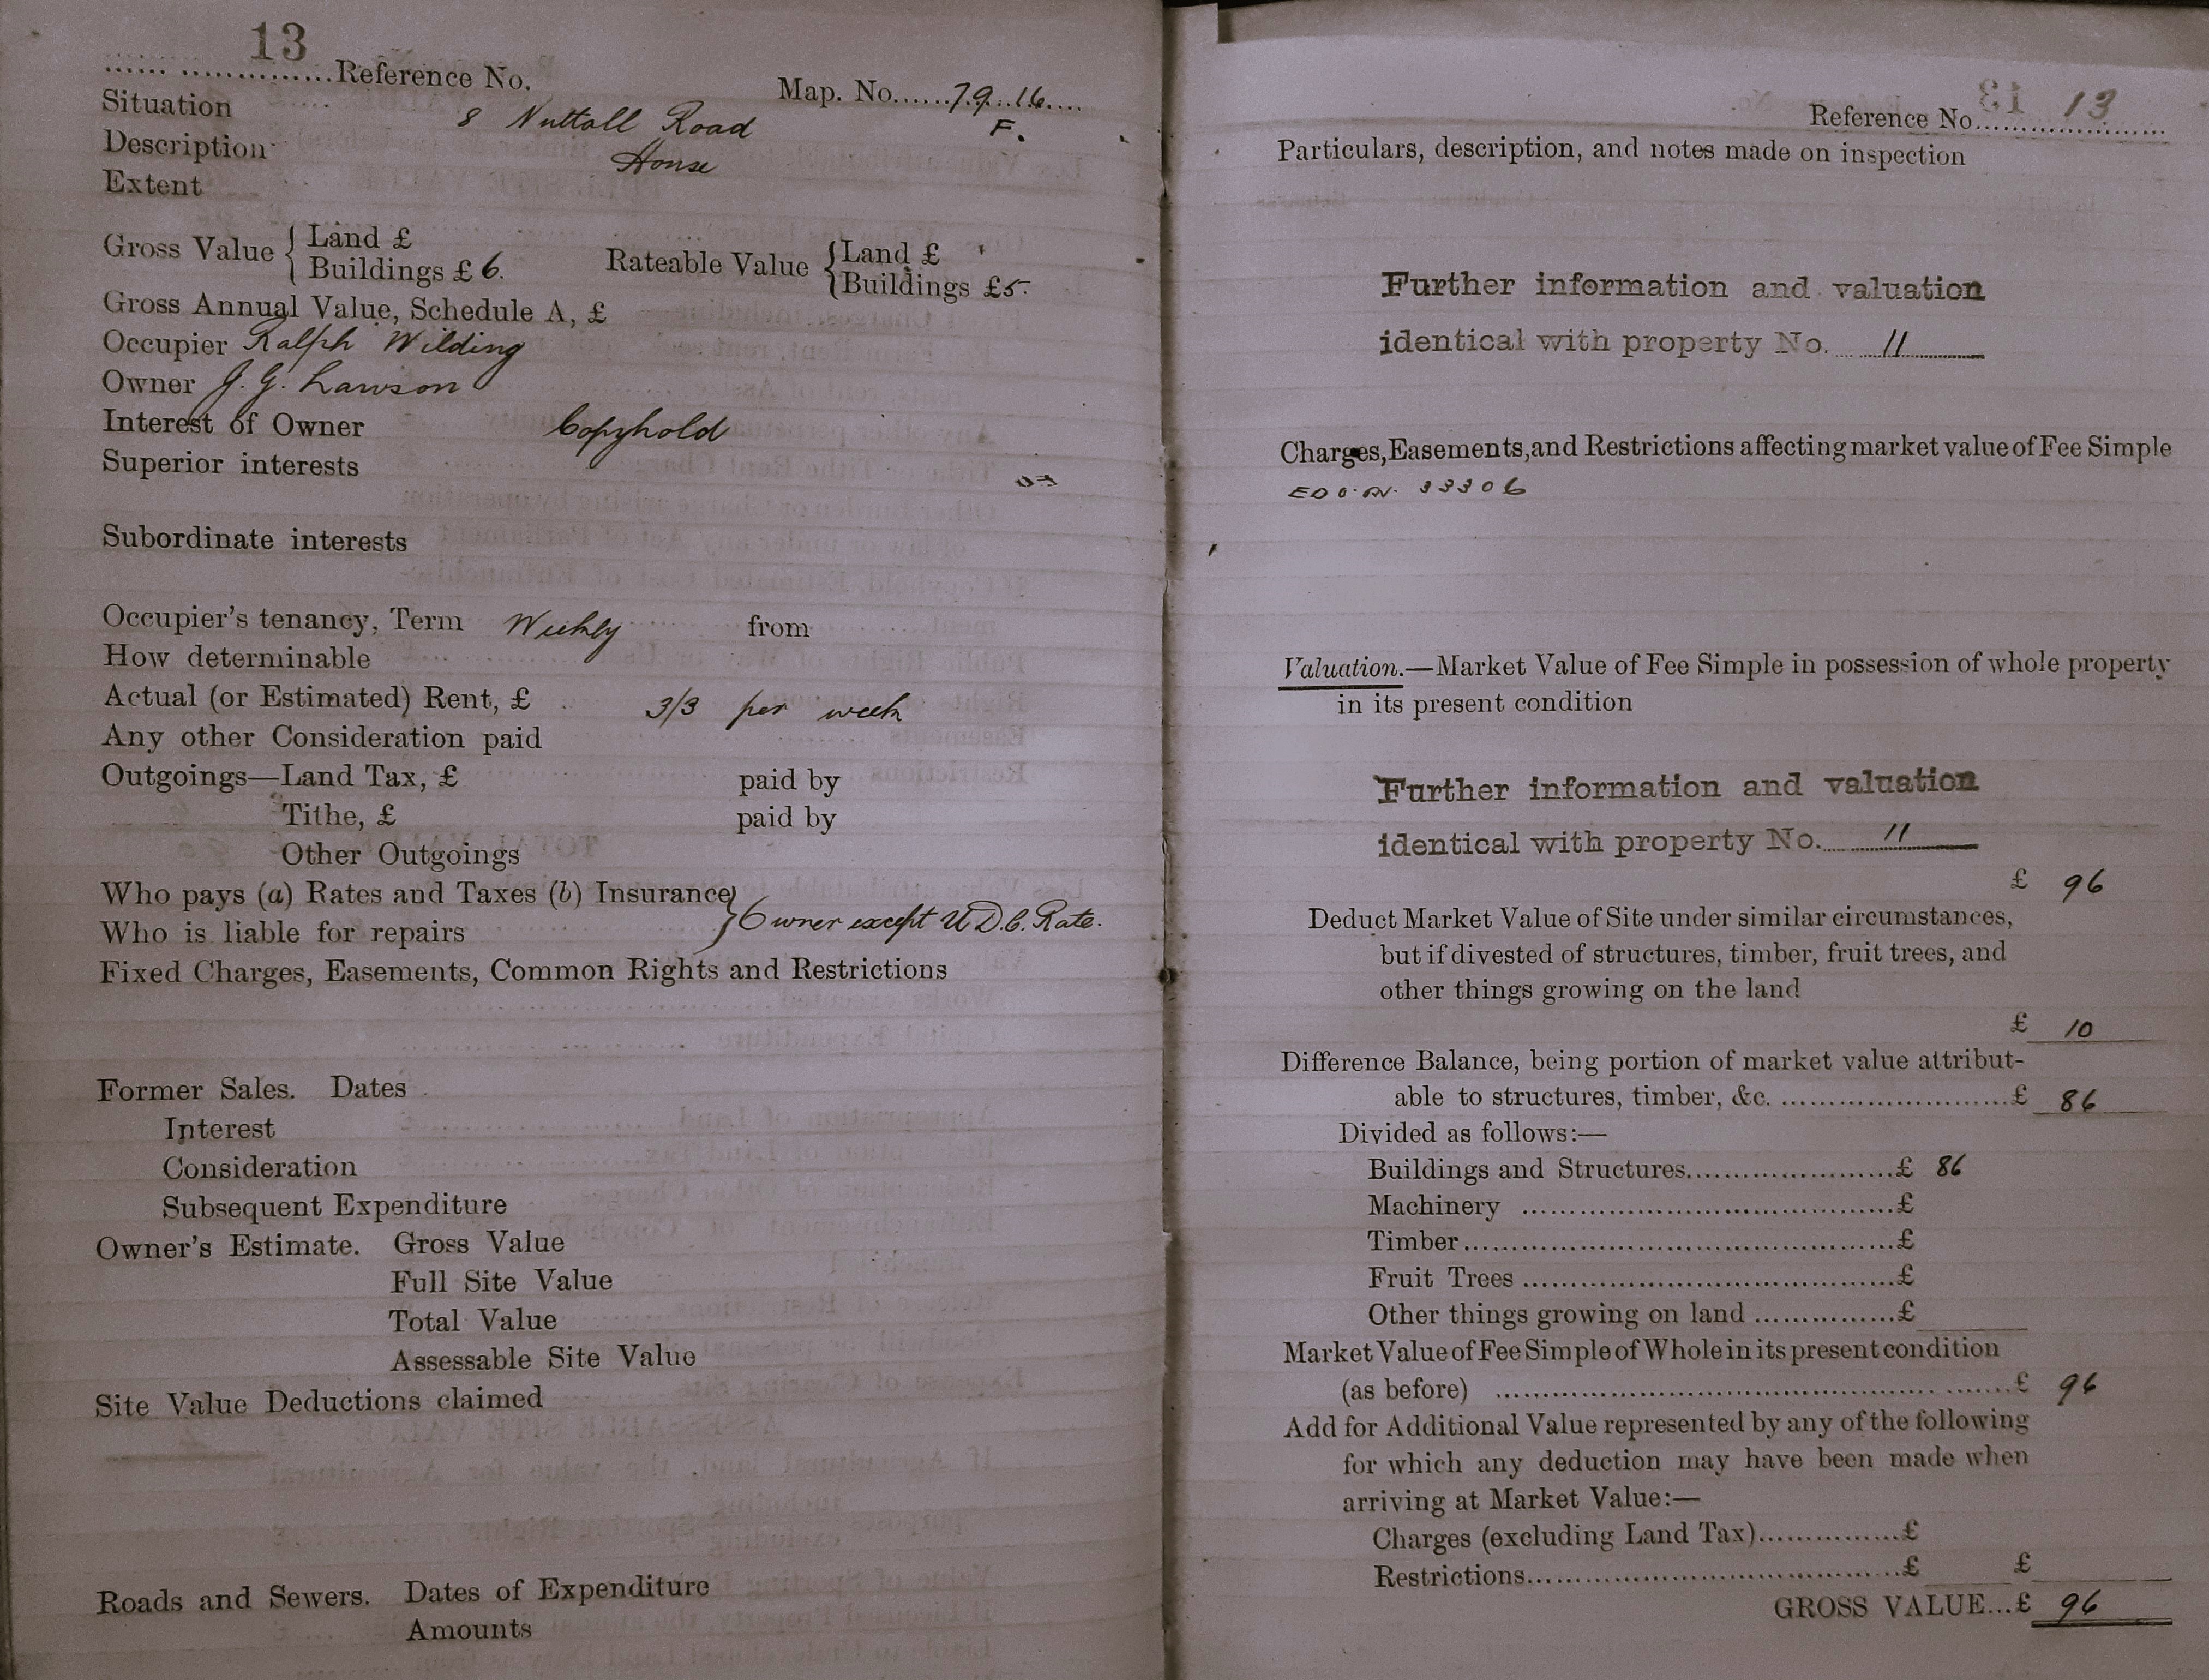 13
Reference No.
Map. No. 79.16
F.
Situation 8 Nuttall Road
Description House
Extent
Gross Value { Land £
Buildings £ 6.
Rateable Value { Land £
Buildings £5.
Gross Annual Value, Schedule A, £
Occupier Ralph Wilding
Owner J. G. Lawson
Interest of Owner Copyhold
Superior interests
Subordinate interests
Occupier's tenancy, Term Weekly from
How determinable
Actual (or Estimated) Rent, £ 3/3 per week
Any other Consideration paid
Outgoings—Land Tax, £ paid by
Tithe, £ paid by
Other Outgoings
Who pays (a) Rates and Taxes (b) Insurance }
Who is liable for repairs } Owner except U.D.C. Rate.
Fixed Charges, Easements, Common Rights and Restrictions
Former Sales. Dates
Interest
Consideration
Subsequent Expenditure
Owner's Estimate. Gross Value
Full Site Value
Total Value
Assessable Site Value
Site Value Deductions claimed
Roads and Sewers. Dates of Expenditure
Amounts
Reference No. 13
Particulars, description, and notes made on inspection
Further information and valuation
identical with property No. 11
Charges, Easements, and Restrictions affecting market value of Fee Simple
33306
Valuation.—Market Value of Fee Simple in possession of whole property
in its present condition
Further information and valuation
identical with property No. 11
£ 96
Deduct Market Value of Site under similar circumstances,
but if divested of structures, timber, fruit trees, and
other things growing on the land
£ 10
Difference Balance, being portion of market value attribut-
able to structures, timber, &c. £ 86
Divided as follows:—
Buildings and Structures £ 86
Machinery £
Timber £
Fruit Trees £
Other things growing on land £
Market Value of Fee Simple of Whole in its present condition
(as before) £ 96
Add for Additional Value represented by any of the following
for which any deduction may have been made when
arriving at Market Value:—
Charges (excluding Land Tax) £
Restrictions £ £
GROSS VALUE...£ 96